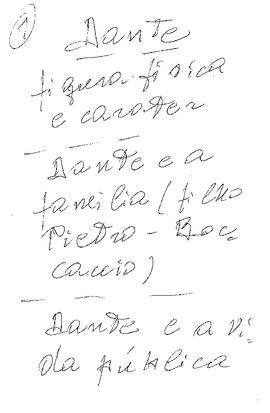 1
Dante
figura física
e carater
Dante e a
familia (filho
Pietro - Boc=
caccio)
Dante e a vi=
da pública